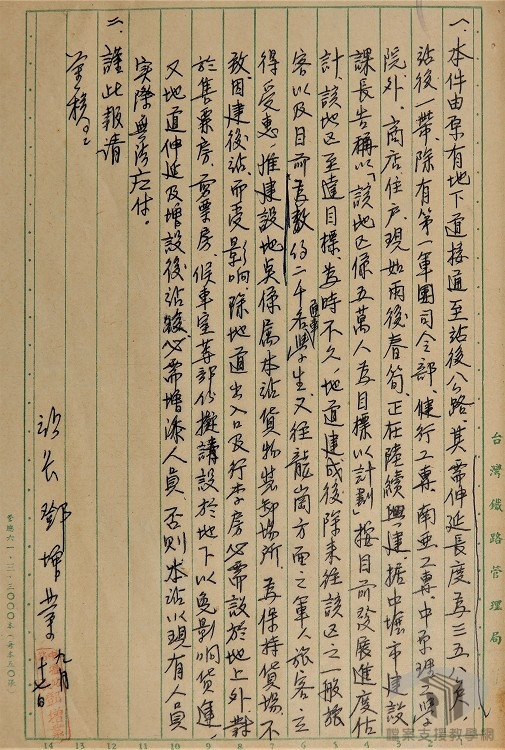 一、本件由原有地下道接通至站後公路、其需伸延長度為三五八公尺、
站後一帶、除有第一軍團司令部、健行工專、南亞工專、中原理工學
院外、商店住戶現如雨後春筍、正在陸續興建、據中壢市建設
課長告稱以「該地區係五萬人為目標以計劃」按目前發展進度估
計、該地區至達目標、為時不久、地道建成後除來往該區之一般旅
客以及目前為數約二千名通車學生、又往龍崗方面之軍人旅客、立
得受惠、惟建設地點係屬本站貨物裝卸場所、為保持貨場、不
致因建後站、而受影響、除地道出入口及行李房必需設於地上外、對
於售票房、電票房、候車室等部份擬請設於地下以免影响貨運、
又地道伸延及增設後站後必需增添人員、否則本站以現有人員
實際無法应付。
二、謹此報請
鑒核
站長 鄧增業 九月
十七日
台灣鐵路管理局
14 13 12 11 10 9 8 7 6 5 4 3 2 1
檔案支援教學網